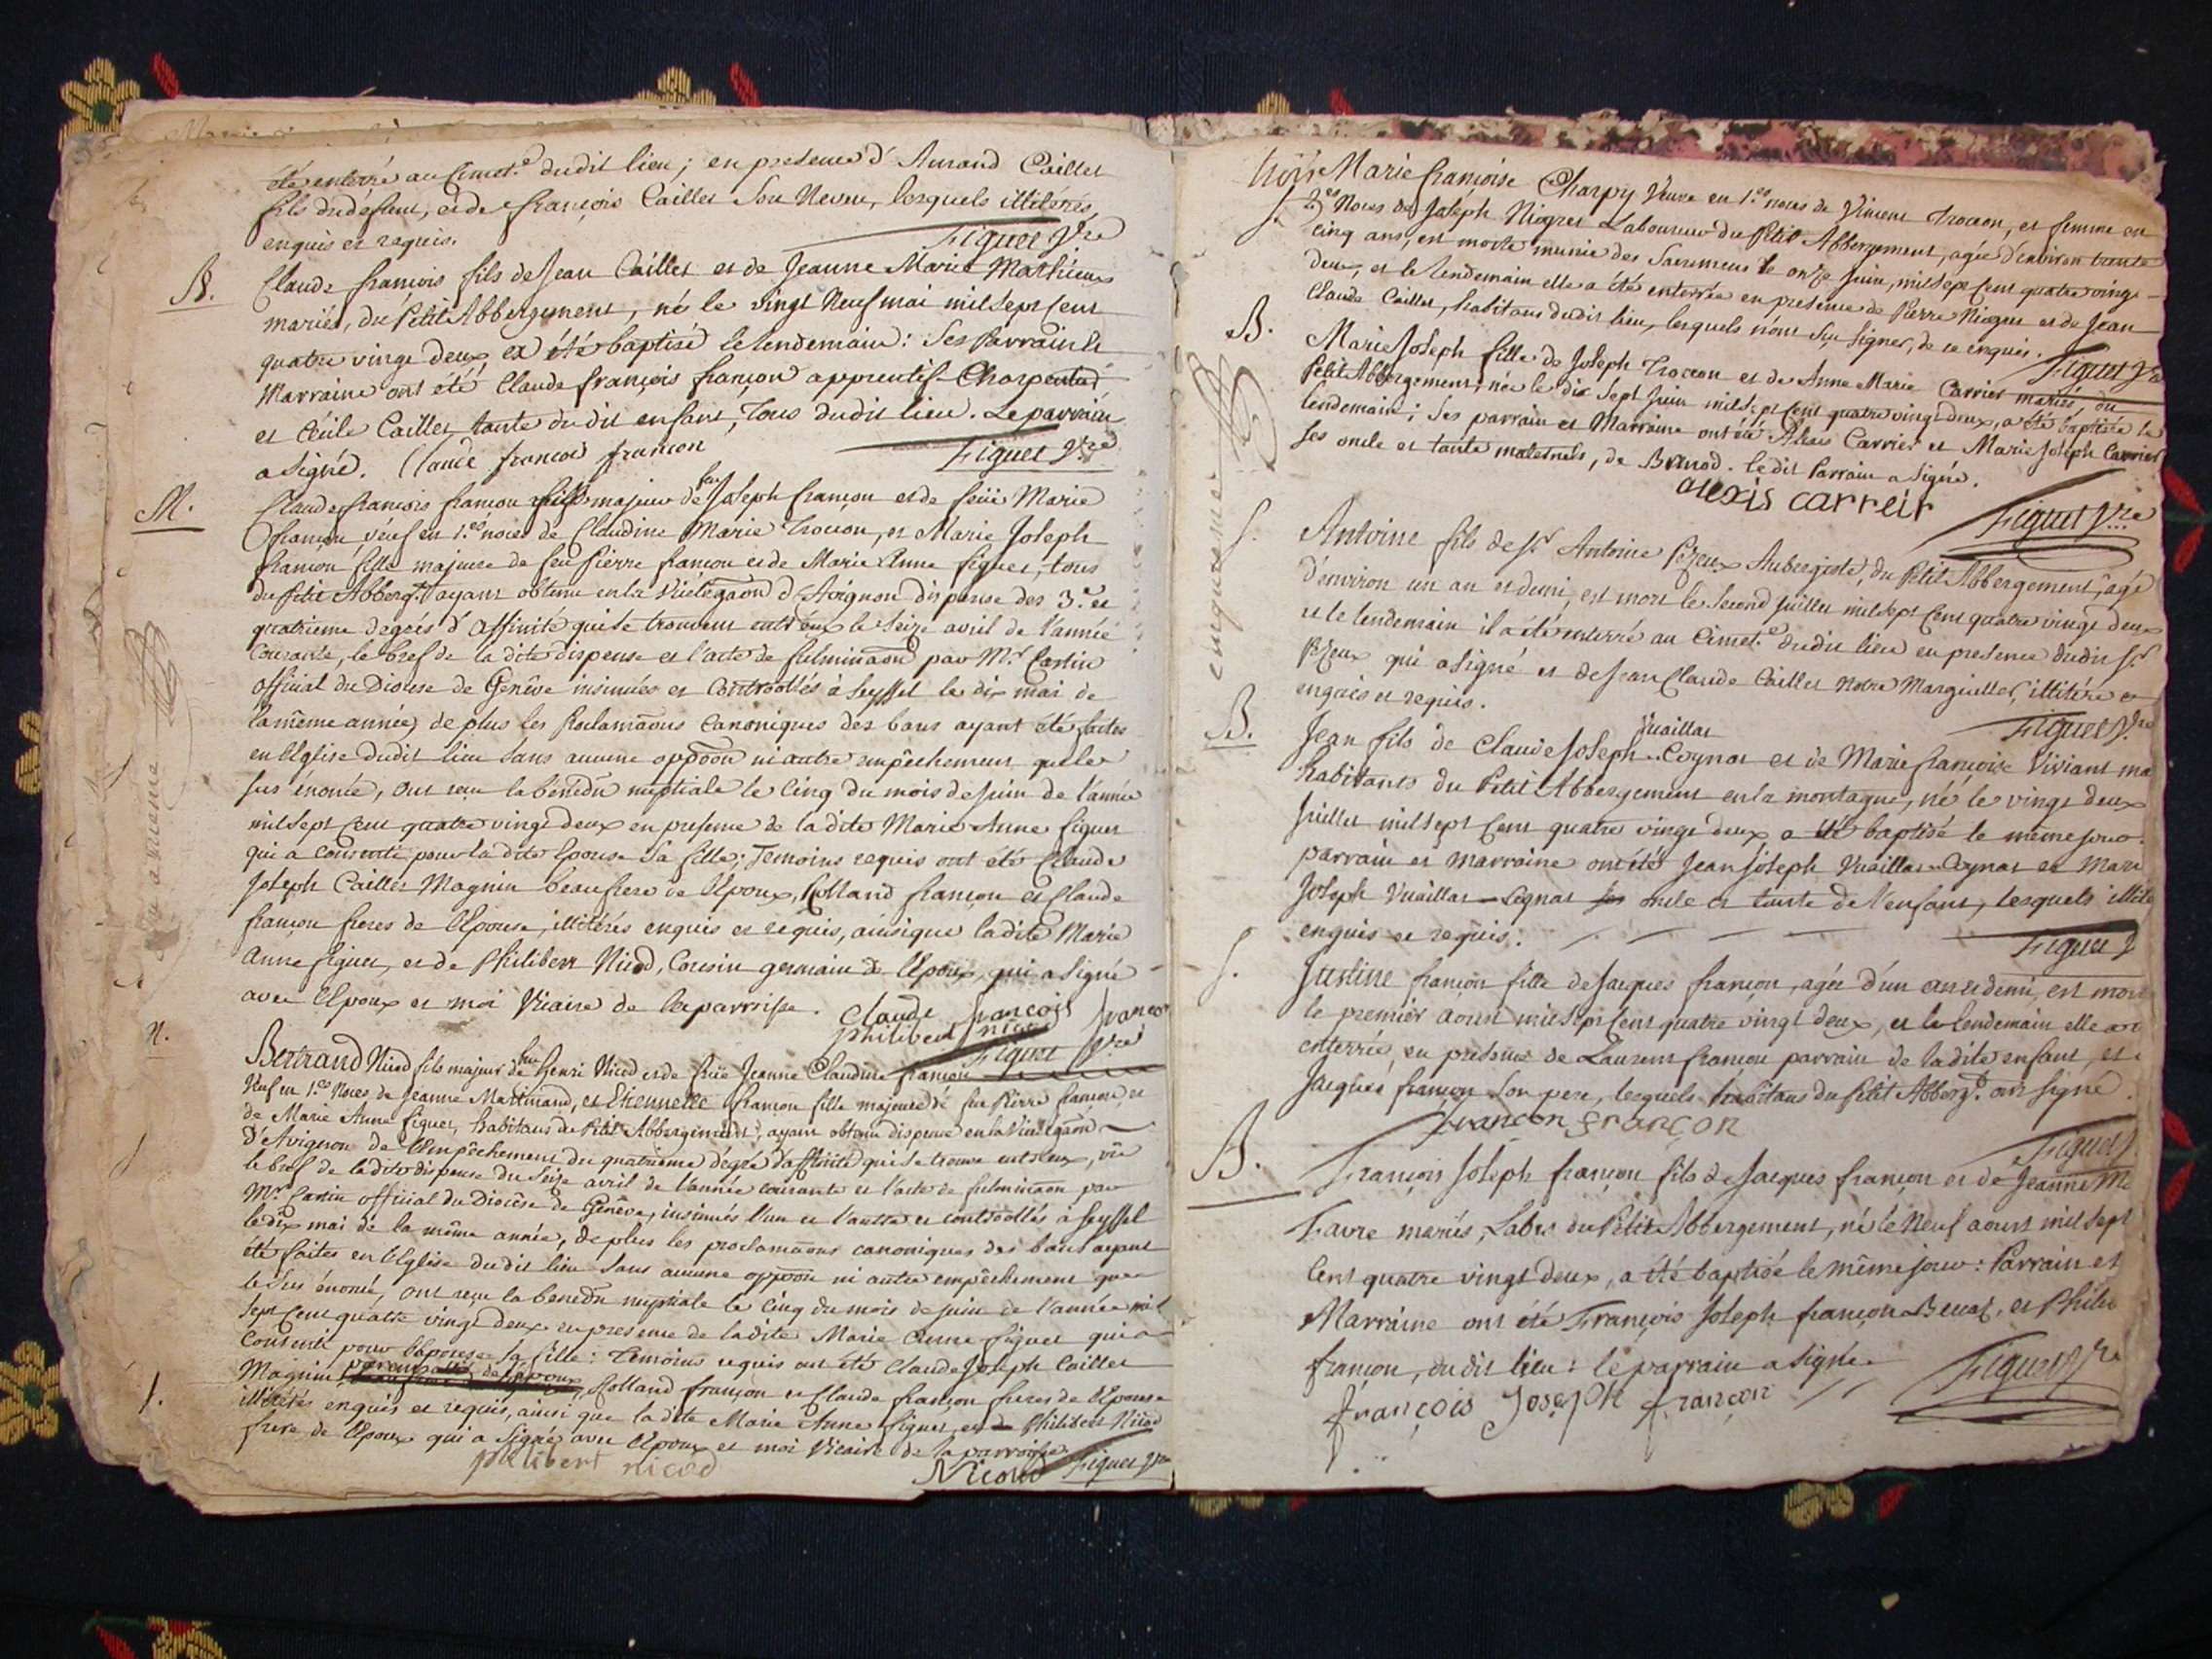 été enterré au Cimet.e dudit lieu; en presence d'Amand Caillet
fils du defunt, et de françois Caillet son Neveu, lesquels illitérés
enquis et requis. Figuet V.re
B. Claude françois fils de Jean Caillet et de Jeanne Marie Mathieu
mariés, du Petit Abbergement, né le vingt Neuf mai mil sept cent
quatre vingt deux a été baptisé le lendemain: Ses Parrain et
Marraine ont été Claude françois françon apprentif-Charpentier
et Cécile Caillet tante dudit enfant, Tous dudit lieu. Le parrain
a signé. Claude françois françon Figuet V.re
M. Claude françois françon fils majeur de feu Joseph françon et de feüe Marie
françon, veuf en 1.es noces de Claudine Marie Trocon, et Marie Joseph
françon fille majeure de feu Pierre françon et de Marie Anne figuet, tous
du Petit Abberg.t ayant obtenu en la Vicélégaon d'Avignon dispense des 3.e et
quatrieme degrés d'affinité qui se trouvent entr'eux le Seize avril de l'année
Courante, le bref de la dite dispense et l'acte de fulminaon par M.r Castin
official du Diocese de Genêve insinués et Controollés à Seyssel le dix mai de
la même année, de plus les Proclamaons Canoniques des bans ayant été faites
en l'Eglise dudit lieu sans aucune oppoon ni autre empêchement que le
sus énoncé, ont reçu la bénédn nuptiale le Cinq du mois de juin de l'année
mil sept Cent quatre vingt deux en presence de la dite Marie Anne figuet
qui a consenti pour la dite Epouse sa fille; Temoins requis ont été Claude
Joseph Caillet Magnin beaufrere de l'Epoux, Rolland françon et Claude
françon freres de l'Epouse, illitérés enquis et requis, ainsi que la dite Marie
Anne figuet, et de Philibert Nicod, Cousin germain de l'Epoux, qui a signé
avec l'Epoux et moi Vicaire de la parroisse. Claude françois françon
philibert nicod Figuet V.re
M. Bertrand Nicod fils majeur de feu henri Nicod et de feüe Jeanne Claudine françon
Veuf en 1.es Noces de Jeanne Martinand, et Etiennette françon fille majeure de feu Pierre françon, et
de Marie Anne figuet, habitans du Petit Abbergement, ayant obtenu dispense en la Vicelégaon
d'Avignon de l'Empêchement du quatrieme degré d'affinité qui se trouve entr'eux, vû
le bref de la dite dispense du Seize avril de l'année courante et l'acte de fulminaon par
M.r Castin official du Diocèse de Genêve, insinués l'un et l'autre et controollés à Seyssel
le dix mai de la même année, de plus les proclamaons canoniques des bans ayant
été faites en l'Eglise dudit lieu sans aucune oppoon ni autre empêchement que
le sus énoncé, ont reçu la benedn nuptiale le cinq du mois de juin de l'année mil
sept cent quatre vingt deux en presence de la dite Marie Anne figuet qui a
consenti pour l'Epouse sa fille: Temoins requis ont été Claude Joseph Caillet
Magnin, Rolland françon et Claude françon freres de l'Epouse
illitérés enquis et requis, ainsi que la dite Marie Anne figuet, et de Philibert Nicod
frere de l'Epoux qui a signé avec l'Epoux et moi Vicaire de la parroisse.
philibert nicod Nicoud Figuet V.re
trois
S. Marie françoise Charpy Veuve en 1.es noces de Vincent Trocon, et femme en
2.es Noces de Joseph Niogret Laboureur du Petit Abbergement, agée d'environ trente
cinq ans, est morte munie des Sacremens le onze juin, mil sept cent quatre vingt
deux, et le lendemain elle a été enterrée en presence de Pierre Niogret et de Jean
Claude Caillet, habitans dudit lieu, lesquels n'ont sçu signer, de ce enquis. Figuet V.re
B. Marie Joseph fille de Joseph Trocon et de Anne Marie Carrier mariés du
Petit Abbergement, née le dix sept juin mil sept cent quatre vingt deux, a été baptisée le
lendemain; Ses parrain et Marraine ont été Alexis Carrier et Marie Joseph Carrier
ses oncle et tante maternels, de Brenod. le dit Parrain a signé.
alexis carreir Figuet V.re
S. Antoine fils de S.r Antoine Pezeux Aubergiste, du Petit Abbergement, agé
d'environ un an et demi, est mort le Second juillet mil sept cent quatre vingt deux
et le lendemain il a été enterré au Cimet.e dudit lieu en presence dudit S.r
Pezeux qui a signé et de Jean Claude Caillet notre Marguiller, illitéré
enquis et requis. Figuet V.re
B. Jean fils de Claude Joseph Vuaillat-Cognat et de Marie françoise Viviant ma
habitants du Petit Abbergement en la montagne, né le vingt deux
juillet mil sept Cent quatre vingt deux a été baptisé le même jour.
parrain et marraine ont été Jean Joseph Vuaillat-Cognat et Mari
Joseph Vuaillat-Cognat oncle et tante de l'enfant, lesquels illité
enquis et requis. Figuet V
S. Justine françon fille de Jacques françon, agée d'un an et demi, est mort
le premier aoust mil sept Cent quatre vingt deux, et le lendemain elle a
enterrée, en presence de Laurent françon parrain de la dite enfant, et
Jacques françon son pere, lesquels habitans du Petit Abberg.t ont signé.
françon françon Figuet V
B. François Joseph françon fils de Jacques françon et de Jeanne M
Favre mariés, Labrs du Petit Abbergement, né le Neuf aoust mil sept
Cent quatre vingt deux, a été baptisé le même jour: Parrain et
Marraine ont été François Joseph françon et Phili
françon, du dit lieu: le parrain a signé.
françois Joseph françon Figuet V.re